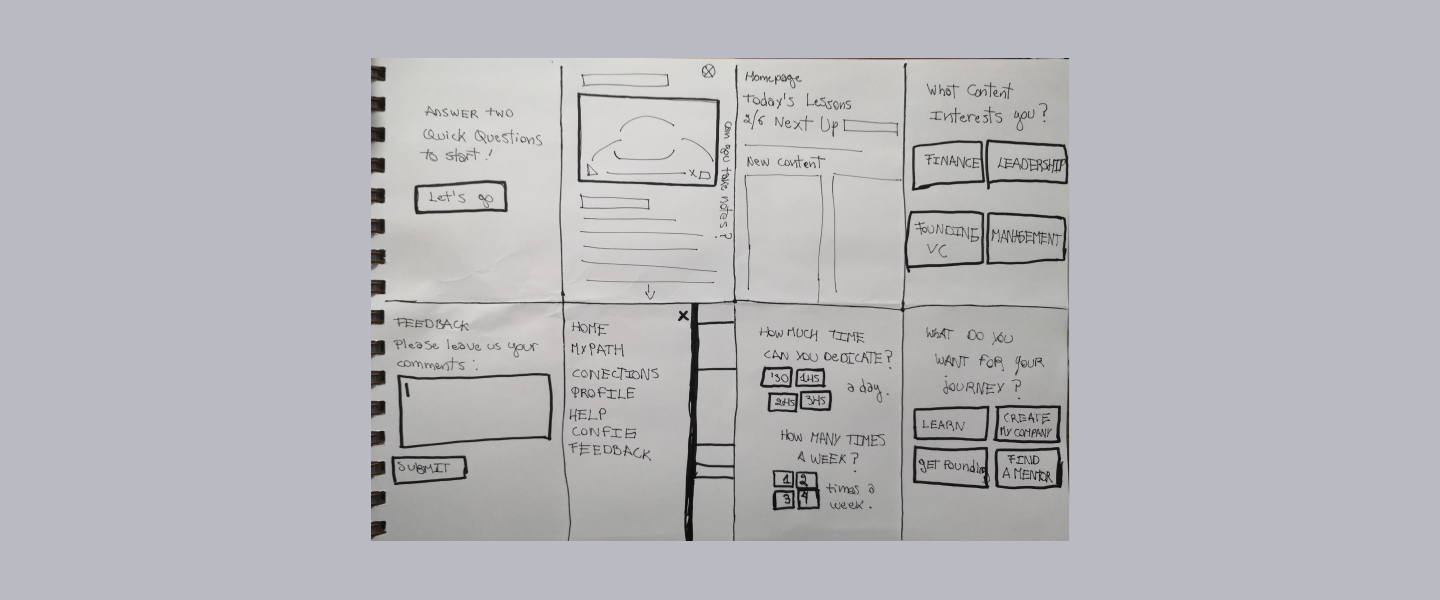 ANSWER TWO
Quick Questions
to start!
Let's go
can you take notes?
Homepage
Today's Lessons
2/6 Next Up
New content
What Content
Interests you?
FINANCE
LEADERSHIP
FOUNDING
VC
MANAGEMENT
FEEDBACK
Please leave us your
comments:
SUBMIT
X
HOME
MYPATH
CONECTIONS
PROFILE
HELP
CONFIG
FEEDBACK
HOW MUCH TIME
CAN YOU DEDICATE?
'30 1HS
2HS 3HS
a day.
HOW MANY TIMES
A WEEK?
1 2
3 4
times a
week.
WHAT DO YOU
WANT FOR YOUR
JOURNEY?
LEARN
CREATE
MY COMPANY
GET Founding
FIND
A MENTOR